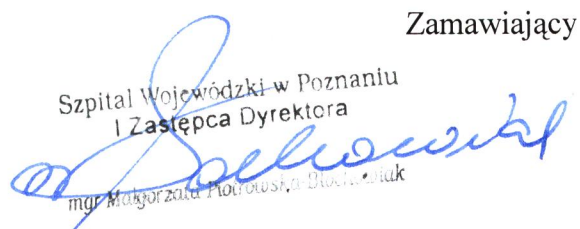 Zamawiający
Szpital Wojewódzki w Poznaniu
I Zastępca Dyrektora
mgr Małgorzata Piotrowska-Błochowiak